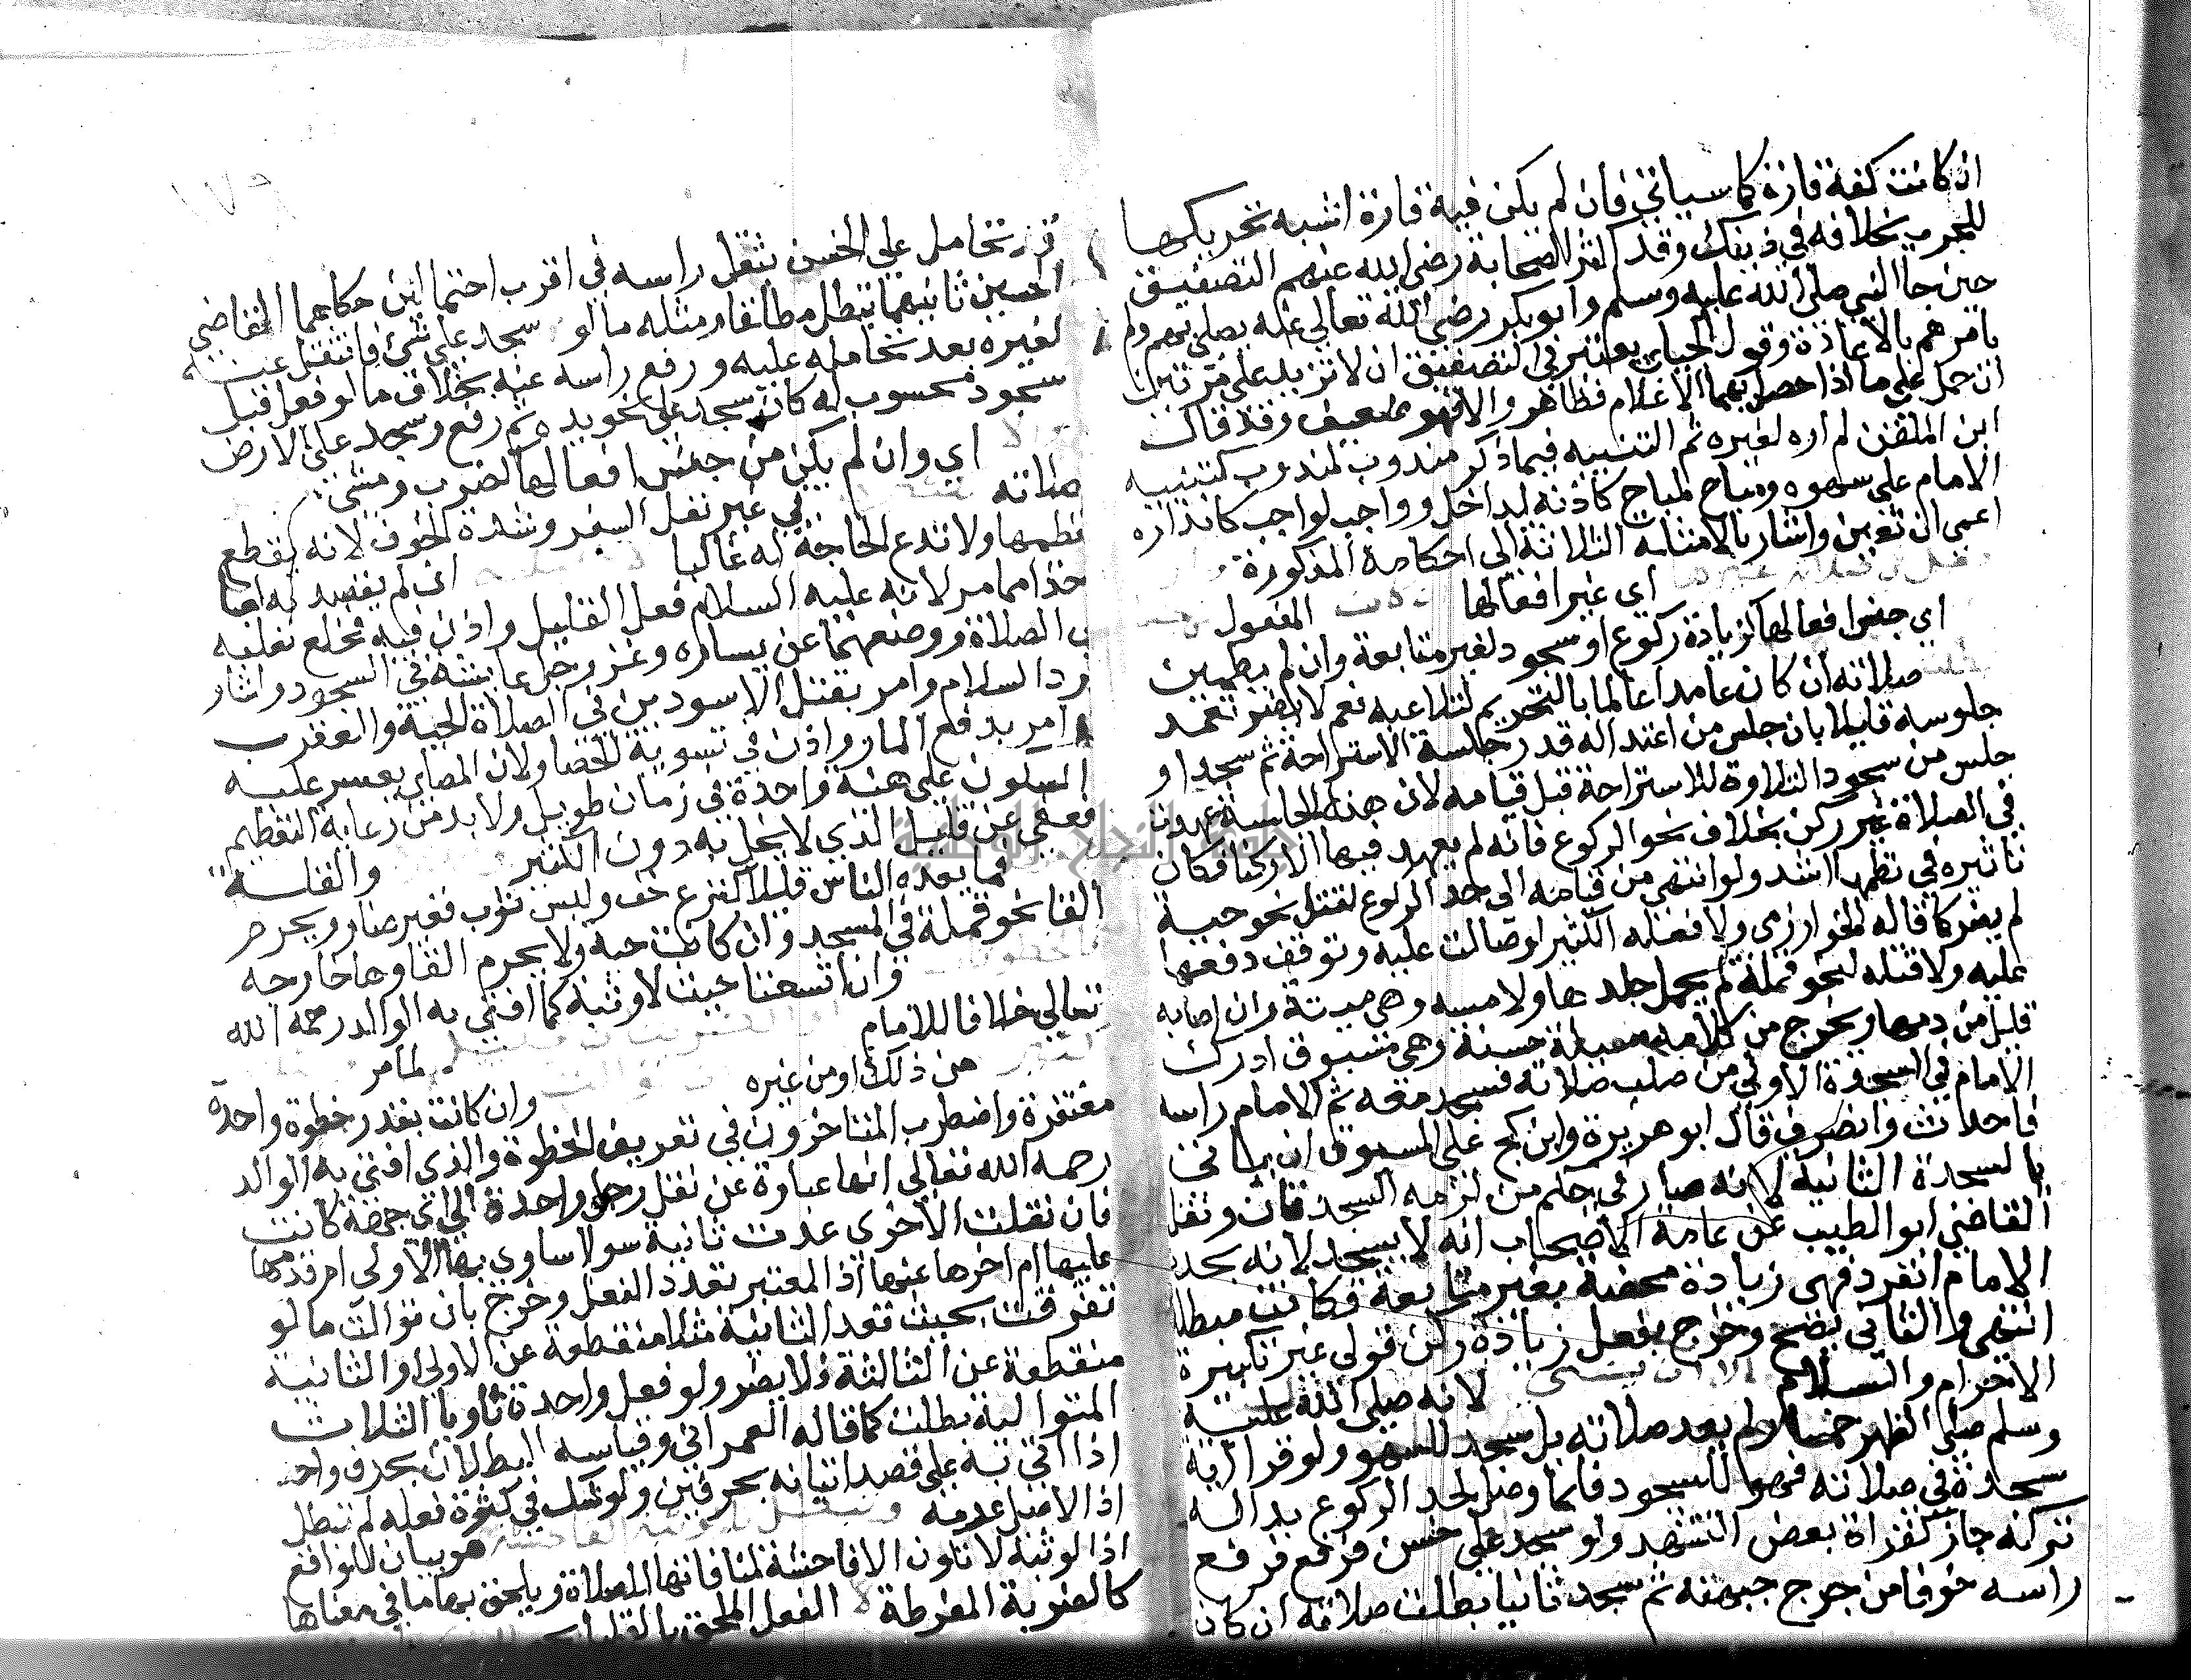 ان كانت كفه قارة كما سياتي فان لم يكن فيه قارة اشبه تحريكها
للجرب بخلافه في ذينك وقد اكثر الصحابة رضي الله عنهم التصفيق
حين جا النبي صلى الله عليه وسلم وابو بكر رضي الله تعالى عنه يصلي بهم ولم
يامرهم بالاعادة وقول الجيلي يعتبر في التصفيق ان لا تزيد على مرتين
ان حمل على ما اذا حصل بهما الاعلام فظاهر والا فهو ضعيف وقد قال
ابن الملقن لم اره لغيره ثم التنبيه فيما ذكر مندوب لمندوب كتنبيه
الامام على سهوه ومباح لمباح كاذنه لداخل وواجب لواجب كانذاره
اعمى ان تعين واشار بالامثلة الثلاثة الى احكامه المذكورة
اي غير افعالها المفعول
اي جنس افعالها كزيادة ركوع او سجود لغير متابعة وان لم يطمين
صلاته ان كان عامدا عالما بالتحريم لتلاعبه نعم لا يضر تعمد
جلوسه قليلا بان جلس من اعتداله قدر جلسة الاستراحة ثم سجد او
جلس من سجود التلاوة للاستراحة قبل قيامه لان هذه الجلسة عهدت
في الصلاة غير ركن بخلاف نحو الركوع فانه لم يعهد فيها الا ركنا فكان
تاثيره في نظمها اشد ولو انتهى من قيامه الى حد الركوع لقتل نحو حية
لم يضر كما قاله الخوارزمي ولا فعله الكثير لو صالت عليه وتوقف دفعها
عليه ولا قتله لنحو قملة لم يحمل جلدها ولا مسه وهي ميتة وان اصابه
قليل من دمها ويخرج من كلامه مسئلة حسنة وهي مسبوق ادرك
الامام في السجدة الاولى من صلب صلاته فسجد معه ثم الامام راسه
فاحدث وانصرف قال ابو هريرة وابن كج على المسبوق ان ياتي
بالسجدة الثانية لانه صار في حكم من لزمه السجدتان ونقل
القاضي ابو الطيب عن عامة الاصحاب انه لا يسجد لانه بحدث
الامام انفرد فهي زيادة محضة بغير متابعة فكانت مبطلة
انتهى والثاني يضح وخرج بفعل زيادة ركن قولي غير تكبيرة
الاحرام والسلام الا ان ينسى لانه صلى الله عليه
وسلم صلى الظهر خمسا ولم يعد صلاته بل سجد للسهو ولو قرا اية
سجدة في صلاته فهوى للسجود فلما وصل لحد الركوع بدا له
تركه جاز كقراة بعض التشهد ولو سجد على خشن فرفع فرفع
راسه خوفا من جرح جبهته ثم سجد ثانيا بطلت صلاته ان كان
تحامل على الخشن بثقل راسه في اقرب احتمالين حكاهما القاضي
الحسين ثانيهما تبطل مطلقا ومثله ما لو سجد على شي فانتقل عنه
لغيره بعد تحامله عليه ورفع راسه عنه بخلاف ما لو فعل قبل
سجود محسوب له كان سجد على نحو يده ثم رفع وسجد على الارض
اي وان لم يكن من جنس افعالها كضرب ومشي
صلاته في غير نفل السفر وشدة الخوف لانه يقطع
نظمها ولا تدع الحاجة له غالبا ان لم يقصد به لعبا
اخذا مما مر لانه عليه السلام فعل القليل واذن فيه فخلع نعليه
في الصلاة ووضعهما عن يساره وغمز رجل عايشة في السجود واشار
برد السلام وامر بقتل الاسودين في الصلاة الحية والعقرب
وامر بدفع المار واذن في تسوية الحصا ولان المصلي يعسر عليه
السكون على هيئة واحدة في زمان طويل ولا بد من رعاية التعظيم
فعفي عن قليل الذي لا يخل به دون الكثير والقلة
فما يعده الناس قليلا كنزع خف ولبس ثوب فغير ضار ويحرم
القا نحو قملة في المسجد وان كانت حية ولا يحرم القاوها خارجه
وان اتسعتا حيث لا وثبة كما افتى به الوالد رحمه الله
تعالى خلافا للامام
من ذلك او من غيره لما مر
وان كانت بقدر خطوة واحدة
مغتفرة واضطرب المتاخرون في تعريف الخطوة والذي افتى به الوالد
رحمه الله تعالى انها عبارة عن نقل رجل واحدة الى اي جهة كانت
فان نقلت الاخرى عدت ثانية سوا ساوى بها الاولى ام قدمها
عليها ام اخرها عنها اذ المعتبر تعدد الفعل وخرج بان توالت ما لو
تفرقت بحيث تعد الثانية مثلا منقطعة عن الاولى او الثانية
منقطعة عن الثالثة فلا يضر ولو فعل واحدة ناويا الثلاث
المتوالية بطلت كما قاله العمراني وقياسه البطلان بحرف واحد
اذا اتى به على قصد اتيانه بحرفين ولو شك في كثرة فعله لم تبطل
اذ الاصل عدمه وتبطل بالوثبة الفاحشة هو بيان للواقع
اذ الوثبة لا تكون الا فاحشة لمنافاتها الصلاة ويلحق بها ما في معناها
كالضربة المفرطة لا الفعل الملحق بالقليل
جامعة النجاح الوطنية